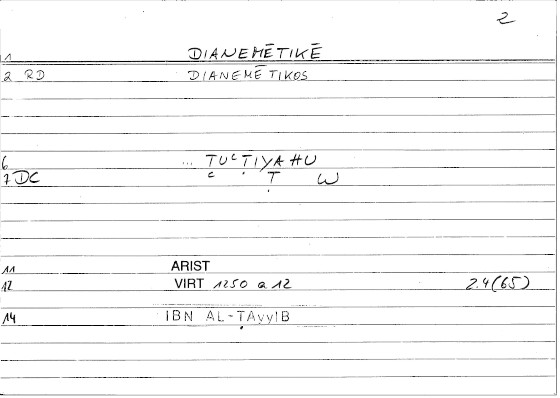 2
1 DIANEMĒTIKĒ
2 RD DIANEMĒTIKOS
6 ... TUᶜṬIYAHU
7 DC ᶜ Ṭ W
11 ARIST
12 VIRT 1250 a 12 2.4(65)
14 IBN AL-ṬAyyIB